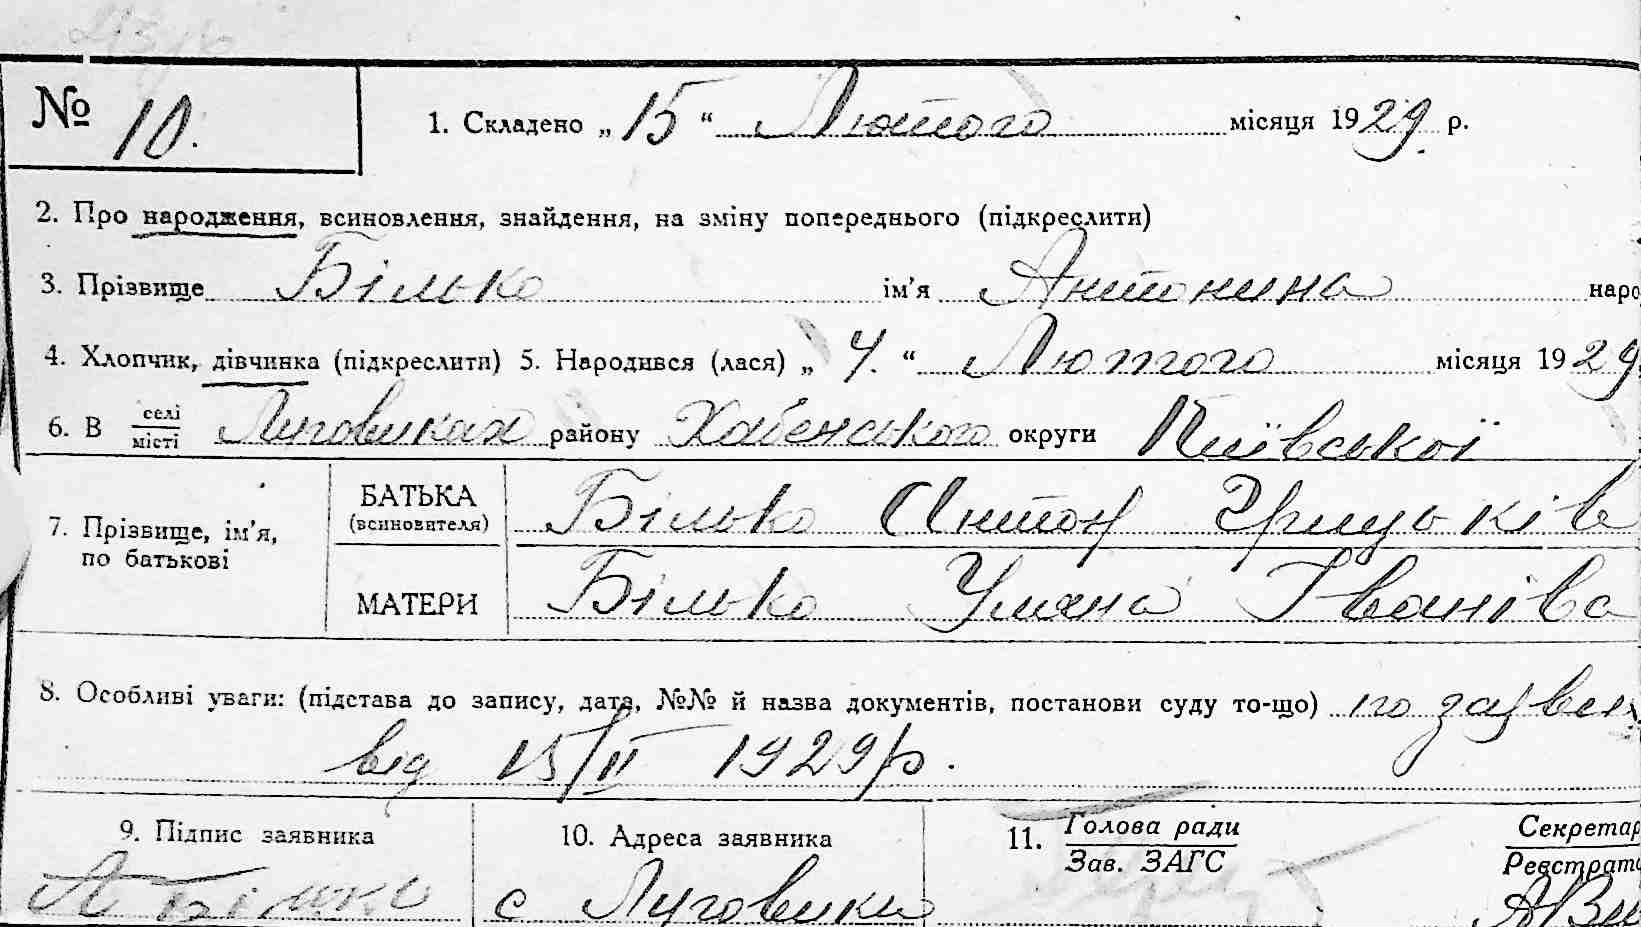 № 10. 1. Складено „15“ Лютого місяця 1929 р.
2. Про народження, всиновлення, знайдення, на зміну попереднього (підкреслити)
3. Прізвище Білько ім’я Антонина наро
4. Хлопчик, дівчинка (підкреслити) 5. Народився (лася) „4.“ Лютого місяця 1929
6. В селі місті Луговиках району Хабенського округи Київської
7. Прізвище, ім’я, по батькові
БАТЬКА (всиновителя) Білько Антон Грицьків
МАТЕРИ Білько Уляна Іваніва
8. Особливі уваги: (підстава до запису, дата, №№ й назва документів, постанови суду то-що) по
від 15/II 1929 р.
9. Підпис заявника 10. Адреса заявника 11. Голова ради Секретар
Зав. ЗАГС Реєстрато
А Білько с Луговики